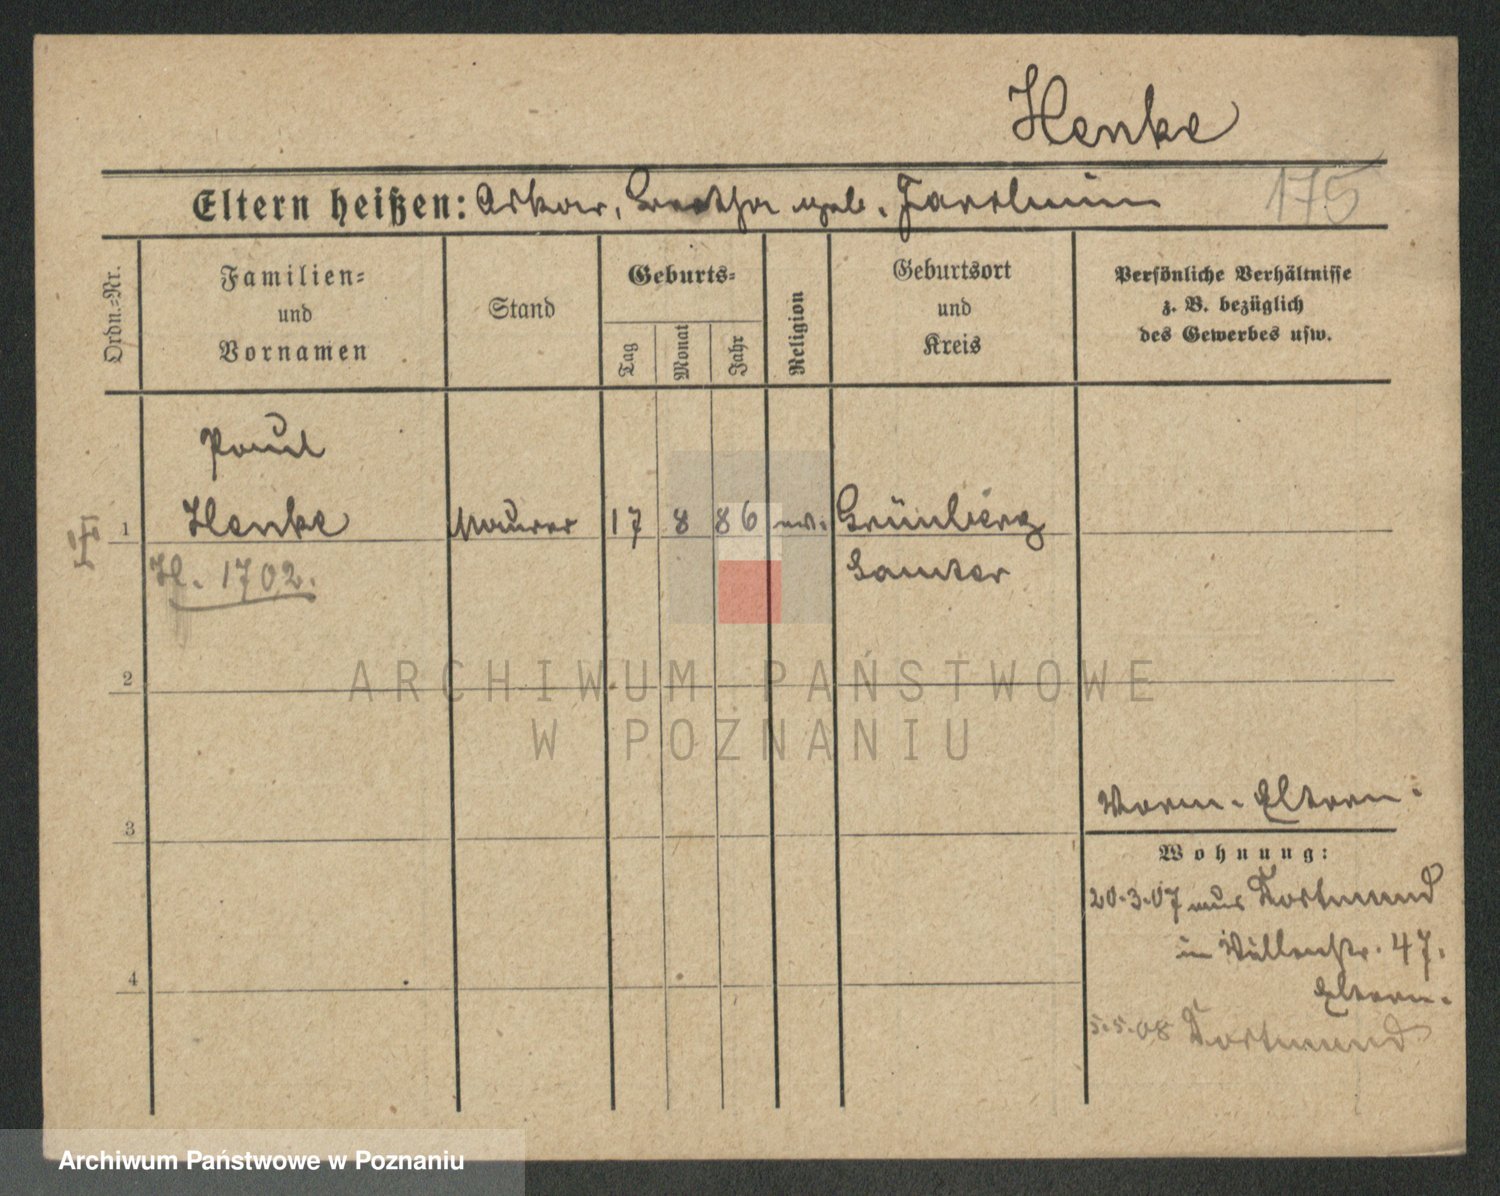 Henke
Eltern heißen: Oskar, Bertha geb.
175
Ordn.-Nr.
Familien-
und
Vornamen
Stand
Geburts-
Tag
Monat
Jahr
Religion
Geburtsort
und
Kreis
Persönliche Verhältnisse
z. B. bezüglich
des Gewerbes usw.
Paul
1 Henke Maurer 17 8 86 ev. Grünberg
H. 1702. Samter
2
ARCHIWUM PAŃSTWOWE
W POZNANIU
Vorm. Eltern.
3
Wohnung:
20.3.07 aus Dortmund
in Wallenstr. 47.
4
Eltern.
5.5.08 Dortmund
Archiwum Państwowe w Poznaniu